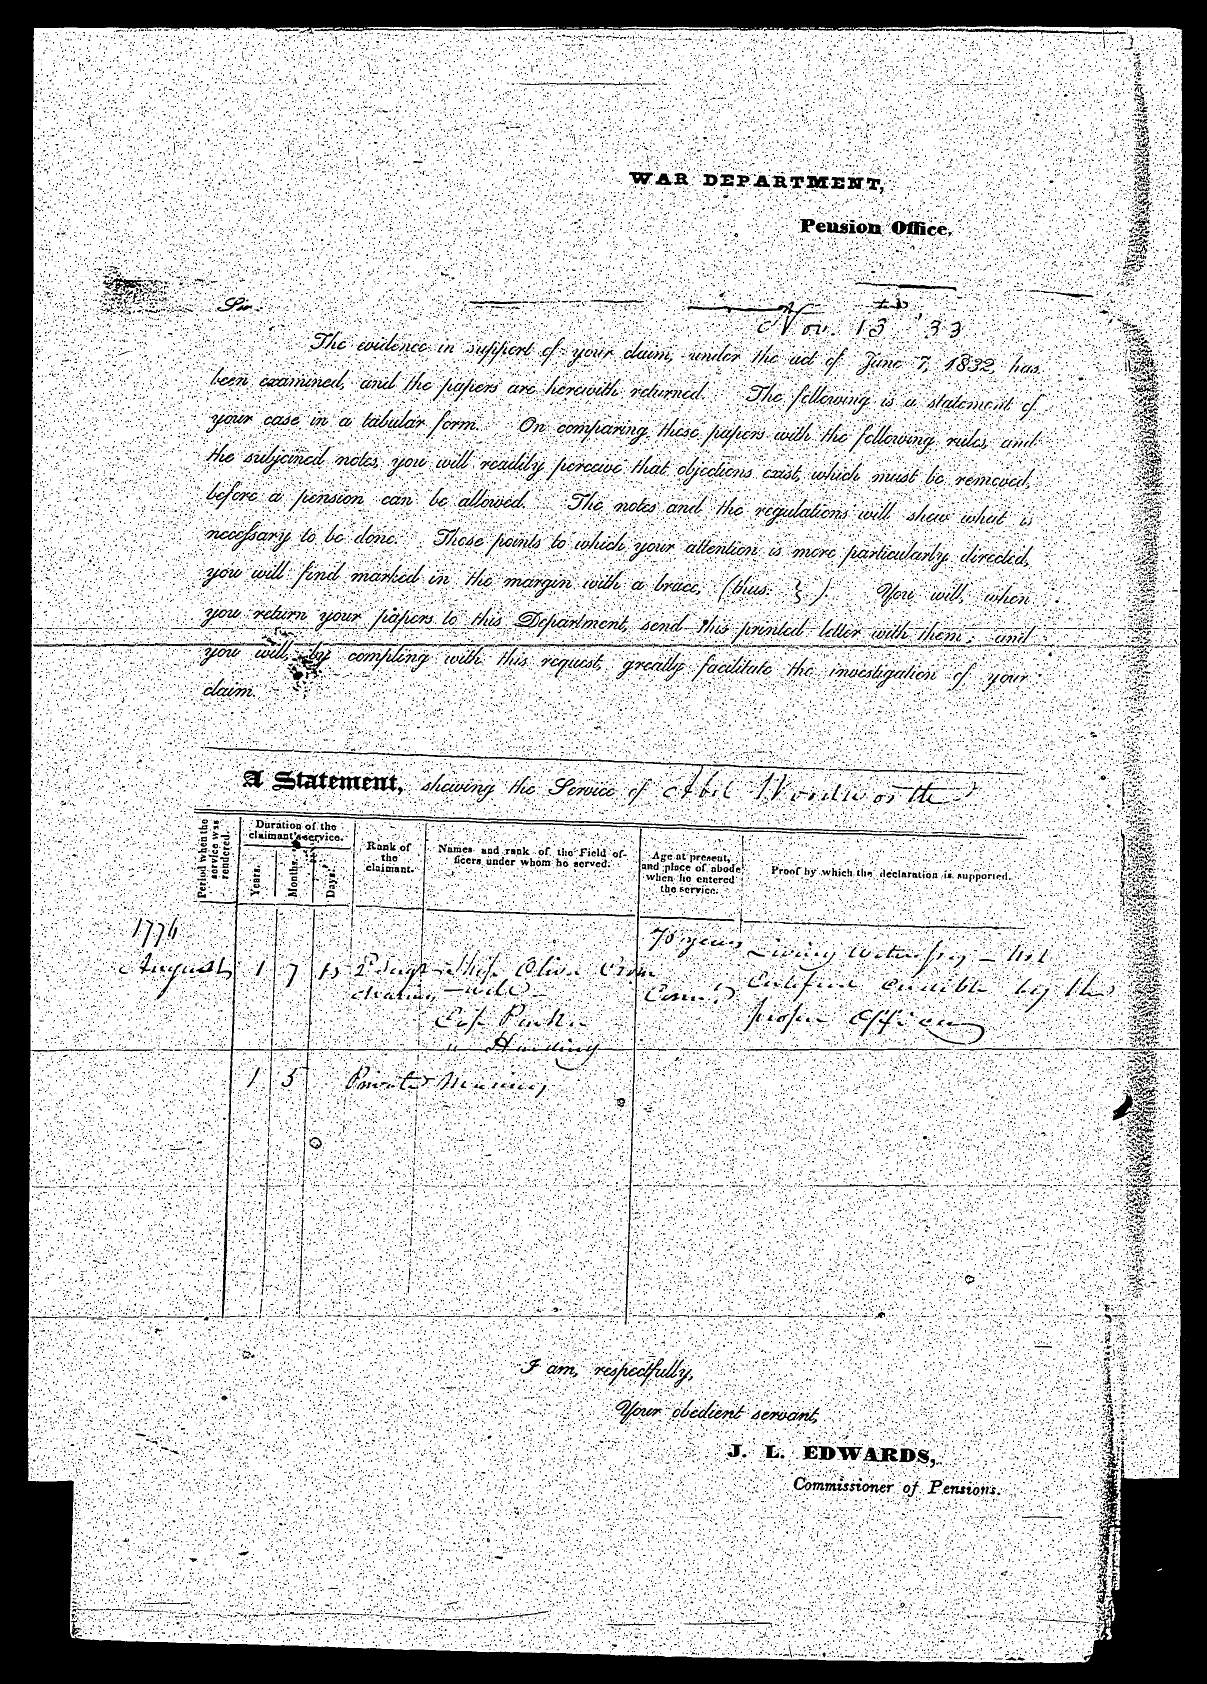 WAR DEPARTMENT,
Pension Office,
Nov. 13th, '33
Sir:
The evidence in support of your claim, under the act of June 7, 1832, has
been examined, and the papers are herewith returned. The following is a statement of
your case in a tabular form. On comparing these papers with the following rules, and
the subjoined notes, you will readily perceive that objections exist, which must be removed,
before a pension can be allowed. The notes and the regulations will shew what is
necessary to be done. Those points to which your attention is more particularly directed,
you will find marked in the margin with a brace, (thus: } ). You will, when
you return your papers to this Department, send this printed letter with them; and
you will, by compling with this request, greatly facilitate the investigation of your
claim.
A Statement, shewing the Service of Abel Woodworth
Period when the service was rendered.
Duration of the claimant's service.
Years.
Months.
Days.
Rank of the claimant.
Names and rank of the Field officers under whom he served.
Age at present, and place of abode when he entered the service.
Proof by which the declaration is supported.
1776
August 1 7 15 Ship Oliver Crom
-well-
Harding
years
Conn.
Living Witness - not
Certified credible by the
proper Officer
1 5 Private Marines
I am, respectfully,
Your obedient servant,
J. L. EDWARDS,
Commissioner of Pensions.